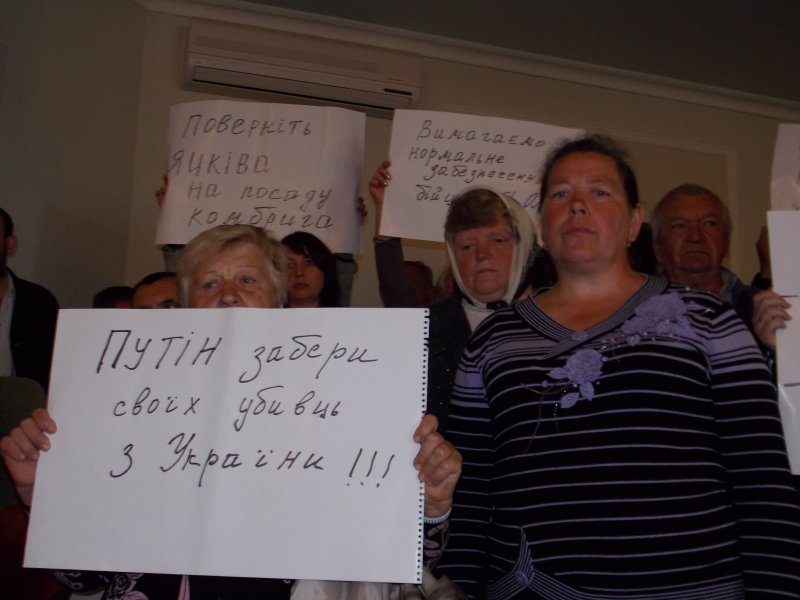 Поверніть
Яцківа
на посаду
комбрига
Вимагаємо
нормальне
забезпечення
ПУТІН забери
своїх убивць
з України !!!